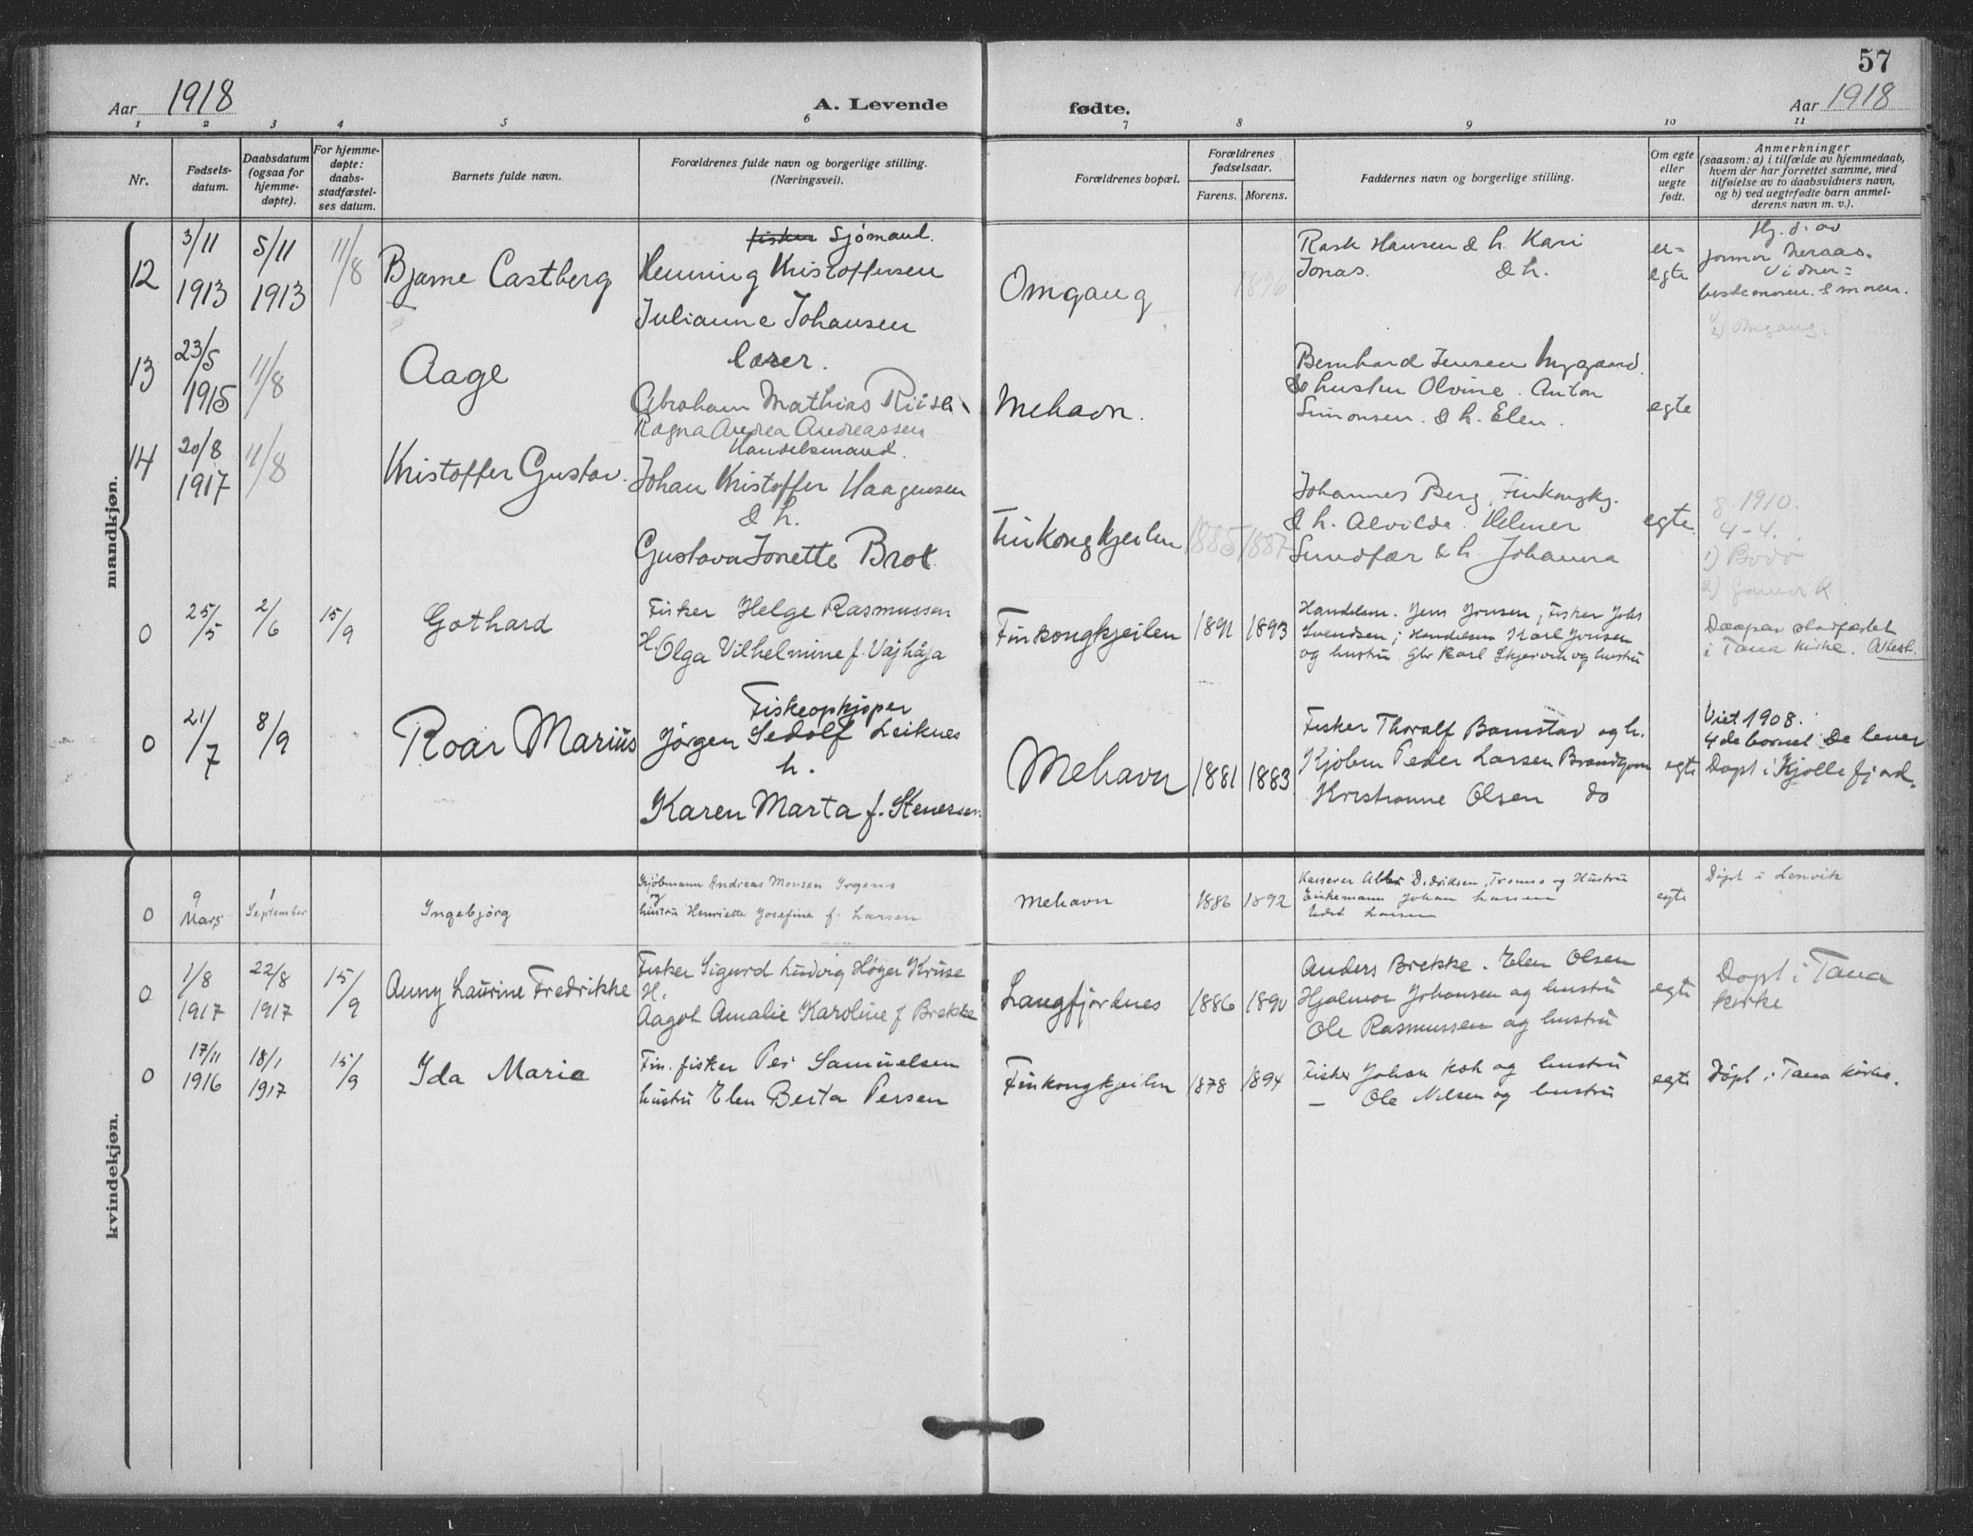 57
Aar 1918
A. Levende fødte.
Aar 1918
1 2 3 4 5 6 7 8 9 10 11
Nr.
Fødsels-
datum.
Daabsdatum
(ogsaa for
hjemme-
døpte).
For hjemme-
døpte:
daabs-
stadfæstel-
ses datum.
Barnets fulde navn.
Forældrenes fulde navn og borgerlige stilling.
(Næringsvei).
Forældrenes bopæl.
Forældrenes
fødselsaar.
Farens. Morens.
Faddernes navn og borgerlige stilling.
Om egte
eller
uegte
født.
Anmerkninger
(saasom: a) i tilfælde av hjemmedaab,
hvem der har forrettet samme, med
tilføielse av to daabsvidners navn,
og b) ved uegtefødte barn anmel-
derens navn m. v.).
mandkjøn.
12
3/11
1913
5/11
1913
11/8
Bjarne Castberg
fisker Sjömand.
Henning Kristoffersen
Julianne Johansen
Omgang
1896
Rask Hansen & h. Kari
Jonas. & h.
u=
egte
Hj. d. av
jormor Neraas.
Vidner=
bestemoren & moren.
2) Omgang.
13
23/5
1915
11/8
Aage
lærer.
Abraham Mathias Riise
Ragna Andrea Andreassen
Mehavn.
Bernhard Jensen Nygaard.
& hustru Olvine. Anton
Simonsen. & h. Elen.
egte
14
20/8
1917
11/8
Kristoffer Gustav.
Handelsmand.
Johan Kristoffer Haagensen
& h.
Gustava Jonette Brot
Finkongkjeilen
1885 1887
Johannes Berg, Finkongkj.
& h. Alvilde. Helmer
Sundfær & h. Johanna
egte.
8 1910.
4-4.
1) Bodö
2) Gamvik
0
25/5
2/6
15/9
Gothard
Fisker Helge Rasmussen
H. Olga Vilhelmine f. Vajhaja
Finkongkjeilen
1891 1893
Handelsm. Jens Jensen, Fisker Johs
Svendsen, Handelsm Karl Jensen
og hustru Gbr Karl Skjervik og hustru
Daapen stadfæstet
i Tana kirke. Attest.
0
21/7
8/9
Roar Marius
Fiskeopkjøper
Jørgen Sedolf Leiknes
h.
Karen Marta f. Stenersen.
Mehavn
1881 1883
Fisker Thoralf Bamstav og h.
Kjøbm Peder Larsen Brandgom
Kristianne Olsen do
egte
Viet 1908.
4de barnet. De lever
Døpt i Kjøllefjord.
kvindekjøn.
0
9
Mars
1
September
Ingebjørg
Kjøbmann Andreas Monsen Irgens
og
hustru Henriette Josefine f. Larsen
Mehavn
1886 1892
Kasserer Albert Didriksen, Tromsø og Hustru
Birkemann Johan Larsen
Edel Larsen
egte
Døpt i Lenvik
0
1/8
1917
22/8
1917
15/9
Anny Laurine Fredrikke
Fisker Sigurd Ludvig Høyer Kruse
H.
Aagot Amalie Karoline f Brekke
Langfjordnes
1886 1890
Anders Brekke. Elen Olsen
Hjalmar Johansen og hustru
Ole Rasmussen og hustru
egte
Døpt i Tana
kirke
0
17/11
1916
18/1
1917
15/9
Ida Marie
Fin. fisker Per Samuelsen
hustru Elen Berta Persen
Finkongkjeilen
1878 1894
Fisker Johan Koh og hustru
— Ole Nilsen og hustru
egte
Døpt i Tana kirke.